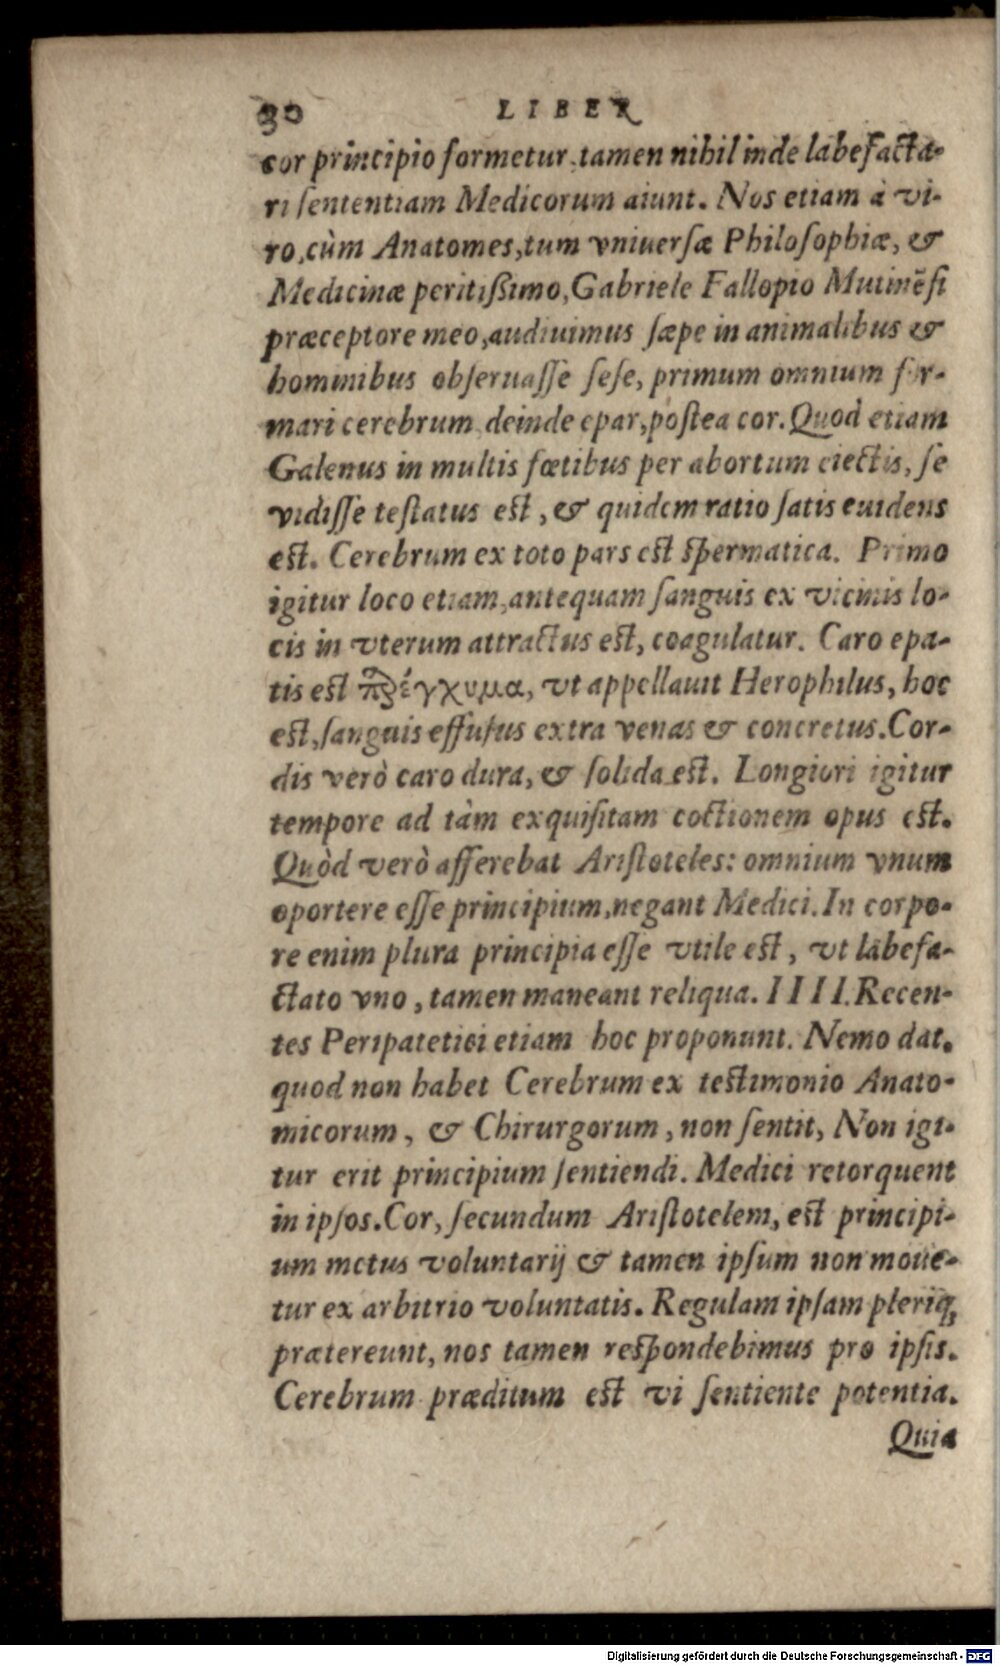 30 LIBER
cor principio formetur, tamen nihil inde labefacta-
ri ſententiam Medicorum aiunt. Nos etiam à vi-
ro, cùm Anatomes, tum vniuerſæ Philoſophiæ, &
Medicinæ peritißimo, Gabriele Fallopio Mutinẽſi
præceptore meo, audiuimus ſæpe in animalibus &
hominibus obſeruaſſe ſeſe, primum omnium for-
mari cerebrum, deinde epar, poſtea cor. Quod etiam
Galenus in multis fœtibus per abortum eiectis, ſe
vidiſſe teſtatus eſt, & quidem ratio ſatis euidens
eſt. Cerebrum ex toto pars eſt ſpermatica. Primo
igitur loco etiam, antequam ſanguis ex vicinis lo-
cis in vterum attractus eſt, coagulatur. Caro epa-
tis eſt παρέγχυμα, vt appellauit Herophilus, hoc
eſt, ſanguis effuſus extra venas & concretus. Cor-
dis verò caro dura, & ſolida eſt. Longiori igitur
tempore ad tàm exquiſitam coctionem opus eſt.
Quòd verò afferebat Ariſtoteles: omnium vnum
oportere eſſe principium, negant Medici. In corpo-
re enim plura principia eſſe vtile eſt, vt labefa-
ctato vno, tamen maneant reliqua. IIII. Recen-
tes Peripatetici etiam hoc proponunt. Nemo dat,
quod non habet Cerebrum ex teſtimonio Anato-
micorum, & Chirurgorum, non ſentit, Non igi-
tur erit principium ſentiendi. Medici retorquent
in ipſos. Cor, ſecundum Ariſtotelem, eſt principi-
um motus voluntarij & tamen ipſum non moue-
tur ex arbitrio voluntatis. Regulam ipſam pleriq;
prætereunt, nos tamen reſpondebimus pro ipſis.
Cerebrum præditum eſt vi ſentiente potentia.
Quia
Digitalisierung gefördert durch die Deutsche Forschungsgemeinschaft - DFG